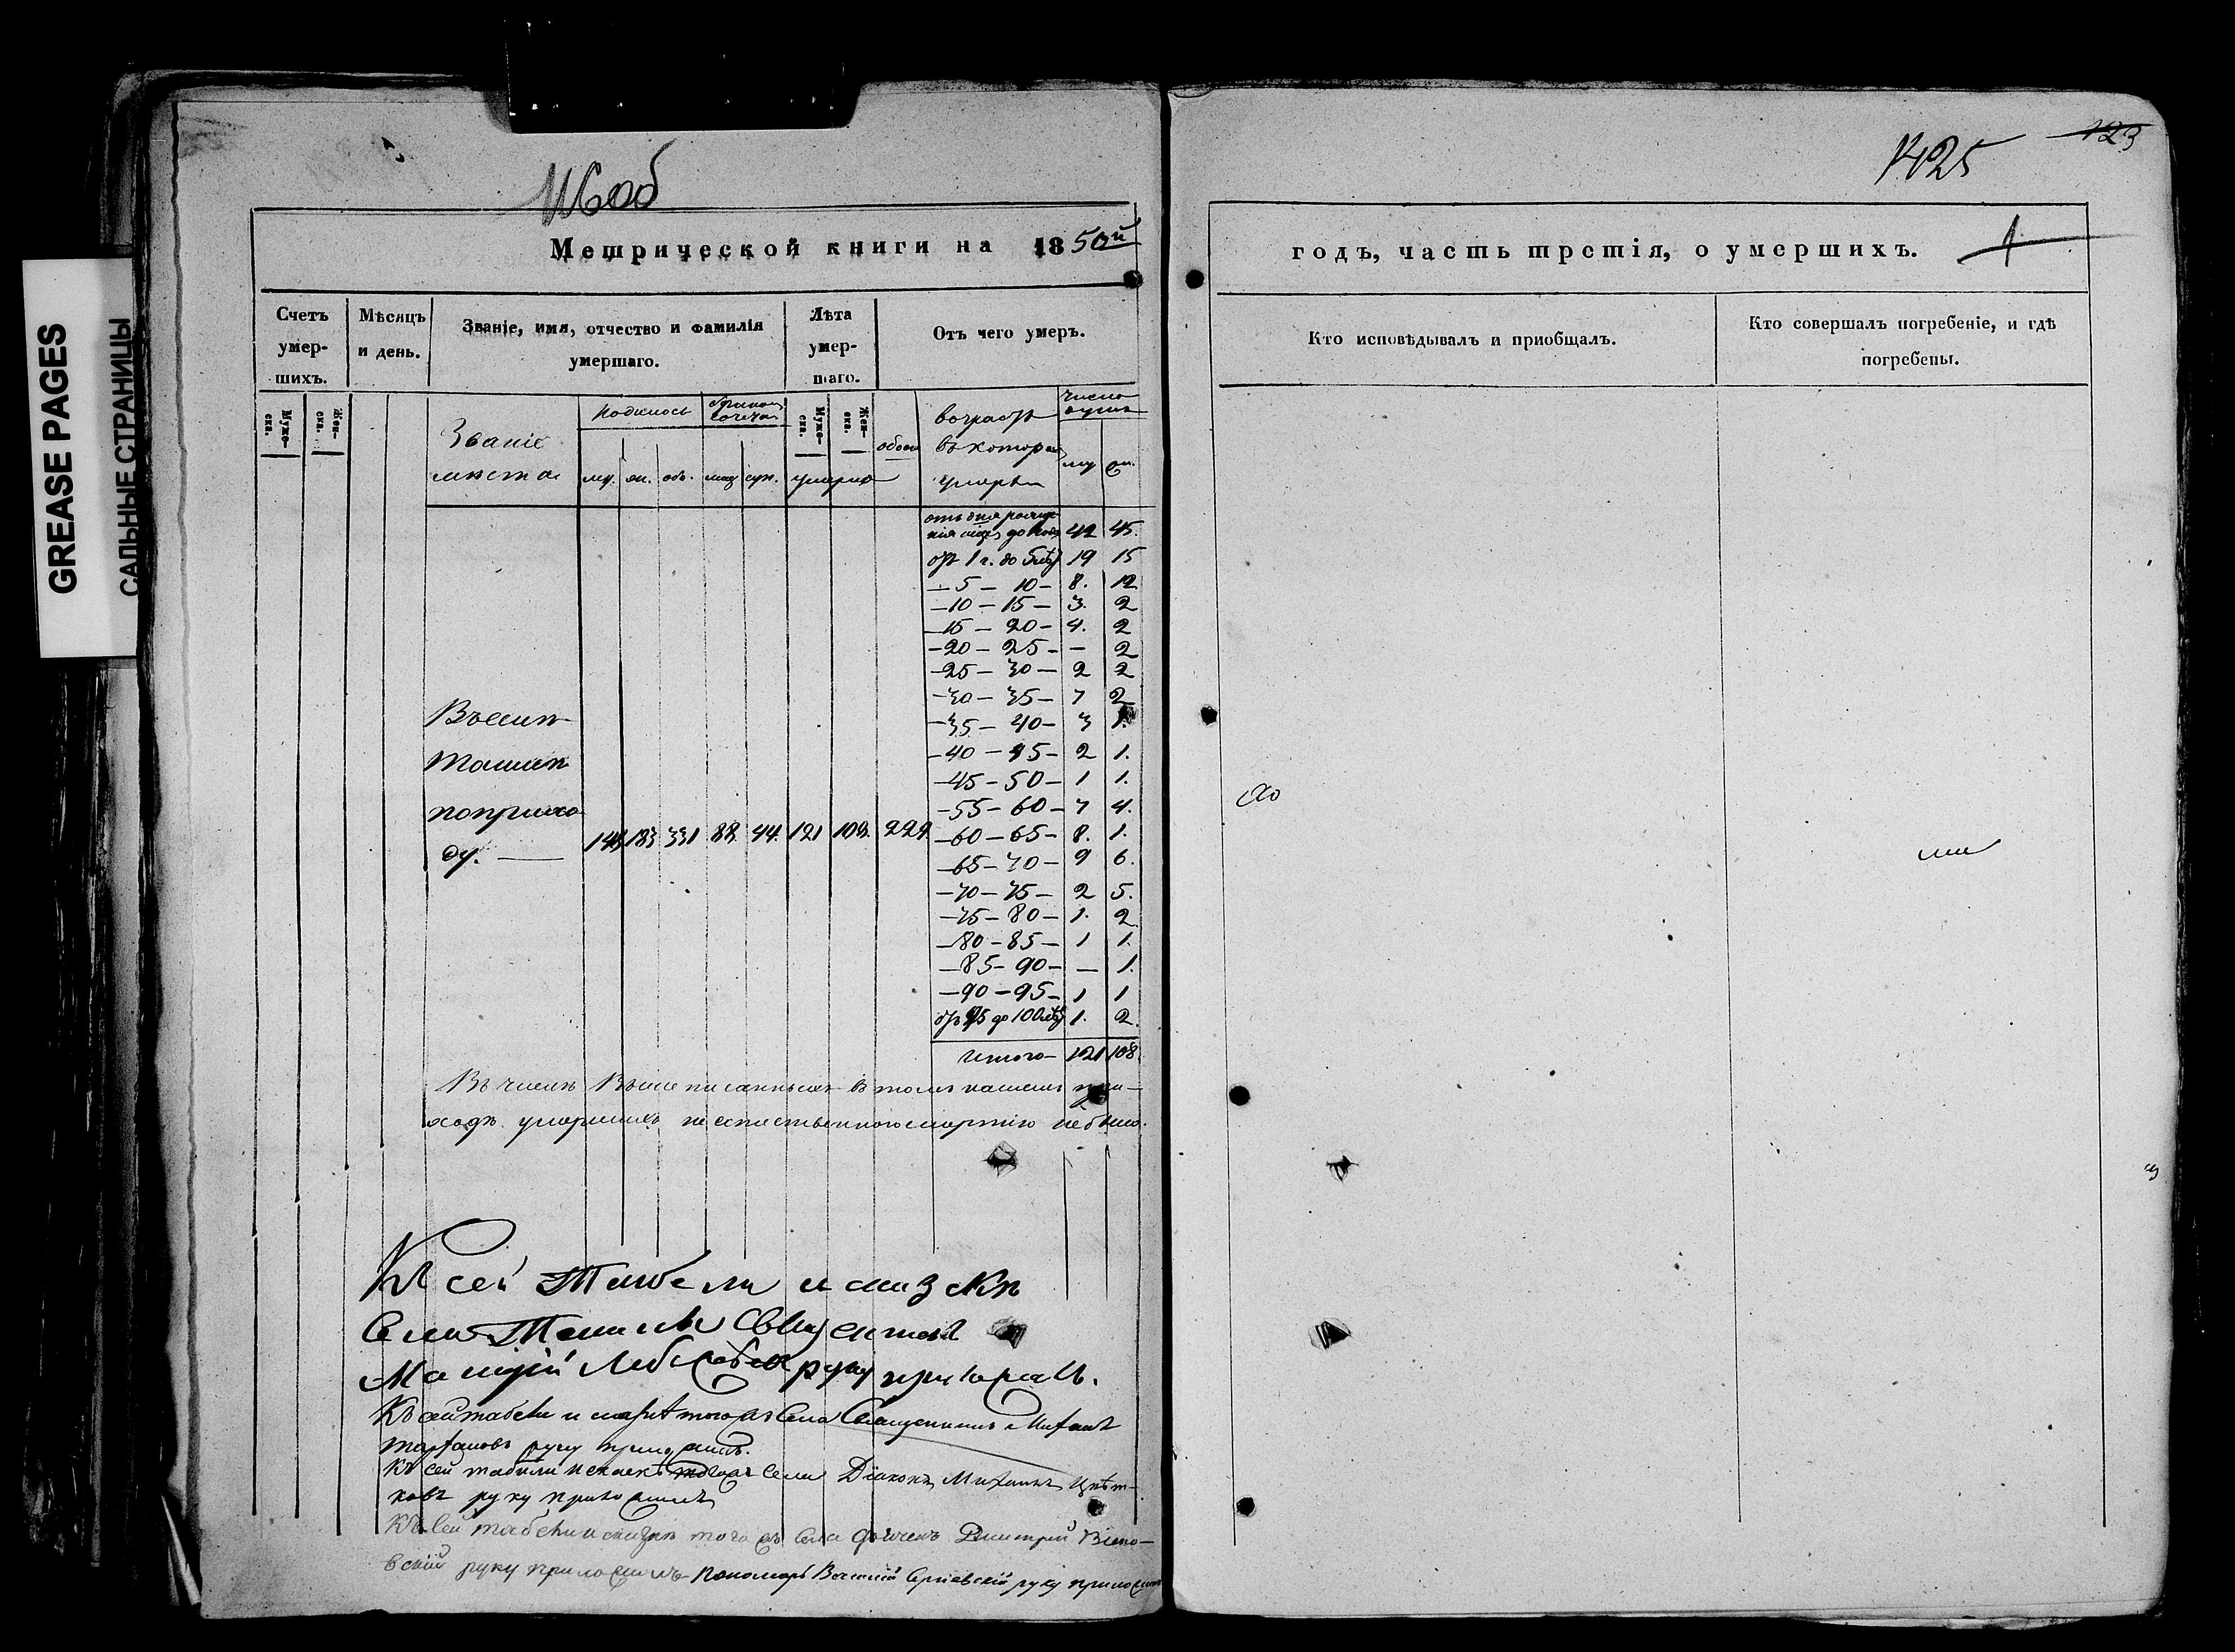 GREASE PAGES
САЛЬНЫЕ СТРАНИЦЫ
Метрической книги на 1850й
Счетъ умер-шихъ.
Мѣсяцъ и день.
Званіе, имя, отчество и фамилія умершаго.
Лѣта умер-шаго.
Отъ чего умеръ.
Муже-ска.
Жен-ска.
Муже-ска.
Жен-ска.
Званіе
мѣста
родилось
му. же. обо.
умерло
обоего
возрастъ
въ которомъ
умерли
число
душъ
отъ дня рожде
нія ихъ до года 42 45.
отъ 1 г. до 5 лѣтъ 19 15
— 5 — 10 — 8. 12
— 10 — 15 — 3. 2
— 15 — 20 — 4. 2
— 20 — 25 — — 2
— 25 — 30 — 2 2
— 30 — 35 — 7 2
— 35 — 40 — 3 1.
— 40 — 45 — 2 1.
— 45 — 50 — 1 1.
— 55 — 60 — 7 4.
— 60 — 65 — 8. 1.
— 65 — 70 — 9 6.
— 70 — 75 — 2 5.
— 75 — 80 — 1. 2
— 80 — 85 — 1 1.
— 85 — 90 — — 1.
— 90 — 95 — 1 1
отъ 95 до 100 лѣтъ 1. 2
итого — 121 108.
Въ селѣ
Ташлѣ
по прихо
ду. —
148 183 331 88. 44. 121 108. 229.
Въ числѣ вышеписанныхъ въ томъ нашемъ при-
ходѣ умершихъ неестественною смертію небыло.
Къ сей Табели
Села Ташлы Священникъ
руку приложилъ.
Къ сей табели и того жъ села Священникъ Михаилъ
руку приложилъ.
Къ сей табели того жъ села Діаконъ Михаилъ Цвѣт-
ковъ руку приложилъ
Къ сей табели того жъ села дьячекъ Дмитрий
руку приложилъ пономарь Василій Сергіевскій руку приложилъ
1425
123
годъ, часть третія, о умершихъ.
1
Кто исповѣдывалъ и пріобщалъ.
Кто совершалъ погребеніе, и гдѣ погребены.